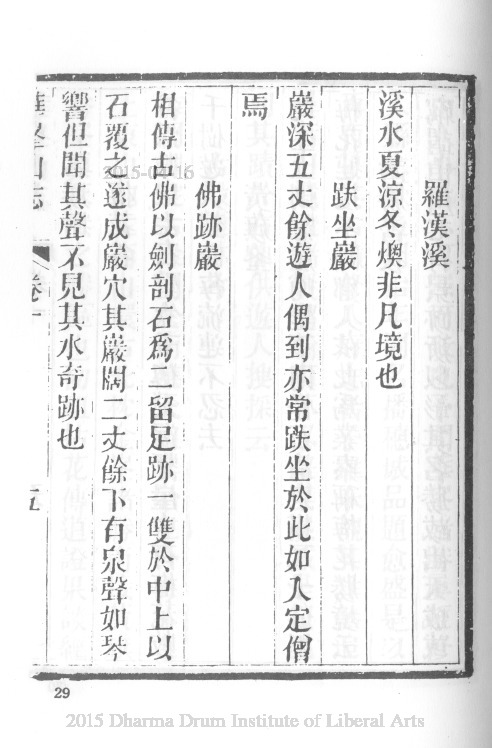 羅漢溪
溪水夏涼冬燠非凡境也
趺坐巖
巖深五丈餘遊人偶到亦常趺坐於此如入定僧
焉
佛跡巖
相傳古佛以劍剖石爲二留足跡一雙於中上以
石覆之遂成巖穴其巖闊二丈餘下有泉聲如琴
響但聞其聲不見其水奇跡也
山志 卷一 五
29
2015 Dharma Drum Institute of Liberal Arts